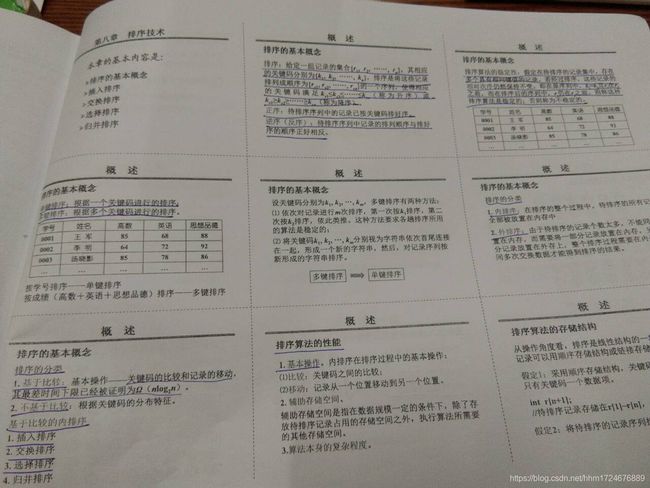 第八章 排序技术
本章的基本内容是:
排序的基本概念
插入排序
交换排序
选择排序
归并排序
概 述
排序的基本概念
排序:给定一组记录的集合{r1, r2, ……, rn},其相应
的关键码分别为{k1, k2, ……, kn},排序是将这些记录
排列成顺序为{rs1, rs2, ……, rsn}的一个序列,使得相应
的关键码满足ks1≤ks2≤……≤ksn(称为升序)或
ks1≥ks2≥……≥ksn(称为降序)。
正序:待排序序列中的记录已按关键码排好序。
逆序(反序):待排序序列中记录的排列顺序与排好
序的顺序正好相反。
概 述
排序的基本概念
排序算法的稳定性:假定在待排序的记录集中,存在
多个具有相同键值的记录,若经过排序,这些记录的
相对次序仍然保持不变,即在原序列中,ki=kj且ri在rj
之前,而在排序后的序列中,ri仍在rj之前,则称这种
排序算法是稳定的;否则称为不稳定的。
学号 姓名 高数 英语 思想品德
0001 王 军 85 68 88
0002 李 明 64 72 92
0003 汤晓影 85 78 86
概 述
排序的基本概念
单键排序:根据一个关键码进行的排序;
多键排序:根据多个关键码进行的排序。
学号 姓名 高数 英语 思想品德
0001 王 军 85 68 88
0002 李 明 64 72 92
0003 汤晓影 85 78 86
按学号排序——单键排序
按成绩(高数+英语+思想品德)排序——多键排序
概 述
排序的基本概念
设关键码分别为k1, k2, …, km,多键排序有两种方法:
⑴ 依次对记录进行m次排序,第一次按k1排序,第二
次按k2排序,依此类推。这种方法要求各趟排序所用
的算法是稳定的;
⑵ 将关键码k1, k2, …, km分别视为字符串依次首尾连接
在一起,形成一个新的字符串,然后,对记录序列按
新形成的字符串排序。
多键排序 ⟹ 单键排序
概 述
排序的基本概念
排序的分类
1. 内排序:在排序的整个过程中,待排序的所有记
全部被放置在内存中
2. 外排序:由于待排序的记录个数太多,不能同
置在内存,而需要将一部分记录放置在内存,另
分记录放置在外存上,整个排序过程需要在内
间多次交换数据才能得到排序的结果。
概 述
排序的基本概念
排序的分类
1. 基于比较:基本操作——关键码的比较和记录的移动,
其最差时间下限已经被证明为Ω(nlog2n)。
2. 不基于比较:根据关键码的分布特征。
基于比较的内排序
1. 插入排序
2. 交换排序
3. 选择排序
4. 归并排序
概 述
排序算法的性能
1. 基本操作。内排序在排序过程中的基本操作:
⑴比较:关键码之间的比较;
⑵移动:记录从一个位置移动到另一个位置。
2. 辅助存储空间。
辅助存储空间是指在数据规模一定的条件下,除了存
放待排序记录占用的存储空间之外,执行算法所需要
的其他存储空间。
3.算法本身的复杂程度。
概 述
排序算法的存储结构
从操作角度看,排序是线性结构的一
记录可以用顺序存储结构或链接存储
假定1:采用顺序存储结构,关键码
只有关键码一个数据项。
int r[n+1];
//待排序记录存储在r[1]~r[n],
假定2:将待排序的记录序列排
https://blog.csdn.net/hhm1724676889